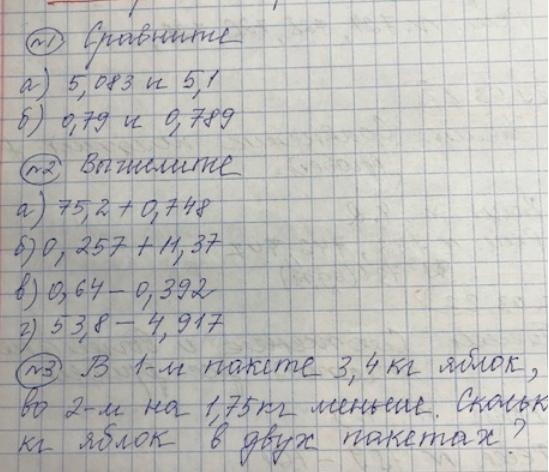 №1 Сравните
а) 5,083 и 5,1
б) 0,79 и 0,789
№2 Вычислите
а) 75,2 + 0,748
б) 0,257 + 11,37
в) 0,64 - 0,392
г) 53,8 - 4,917
№3 В 1-м пакете 3,4 кг яблок,
во 2-м на 1,75кг меньше. Сколько
кг яблок в двух пакетах?